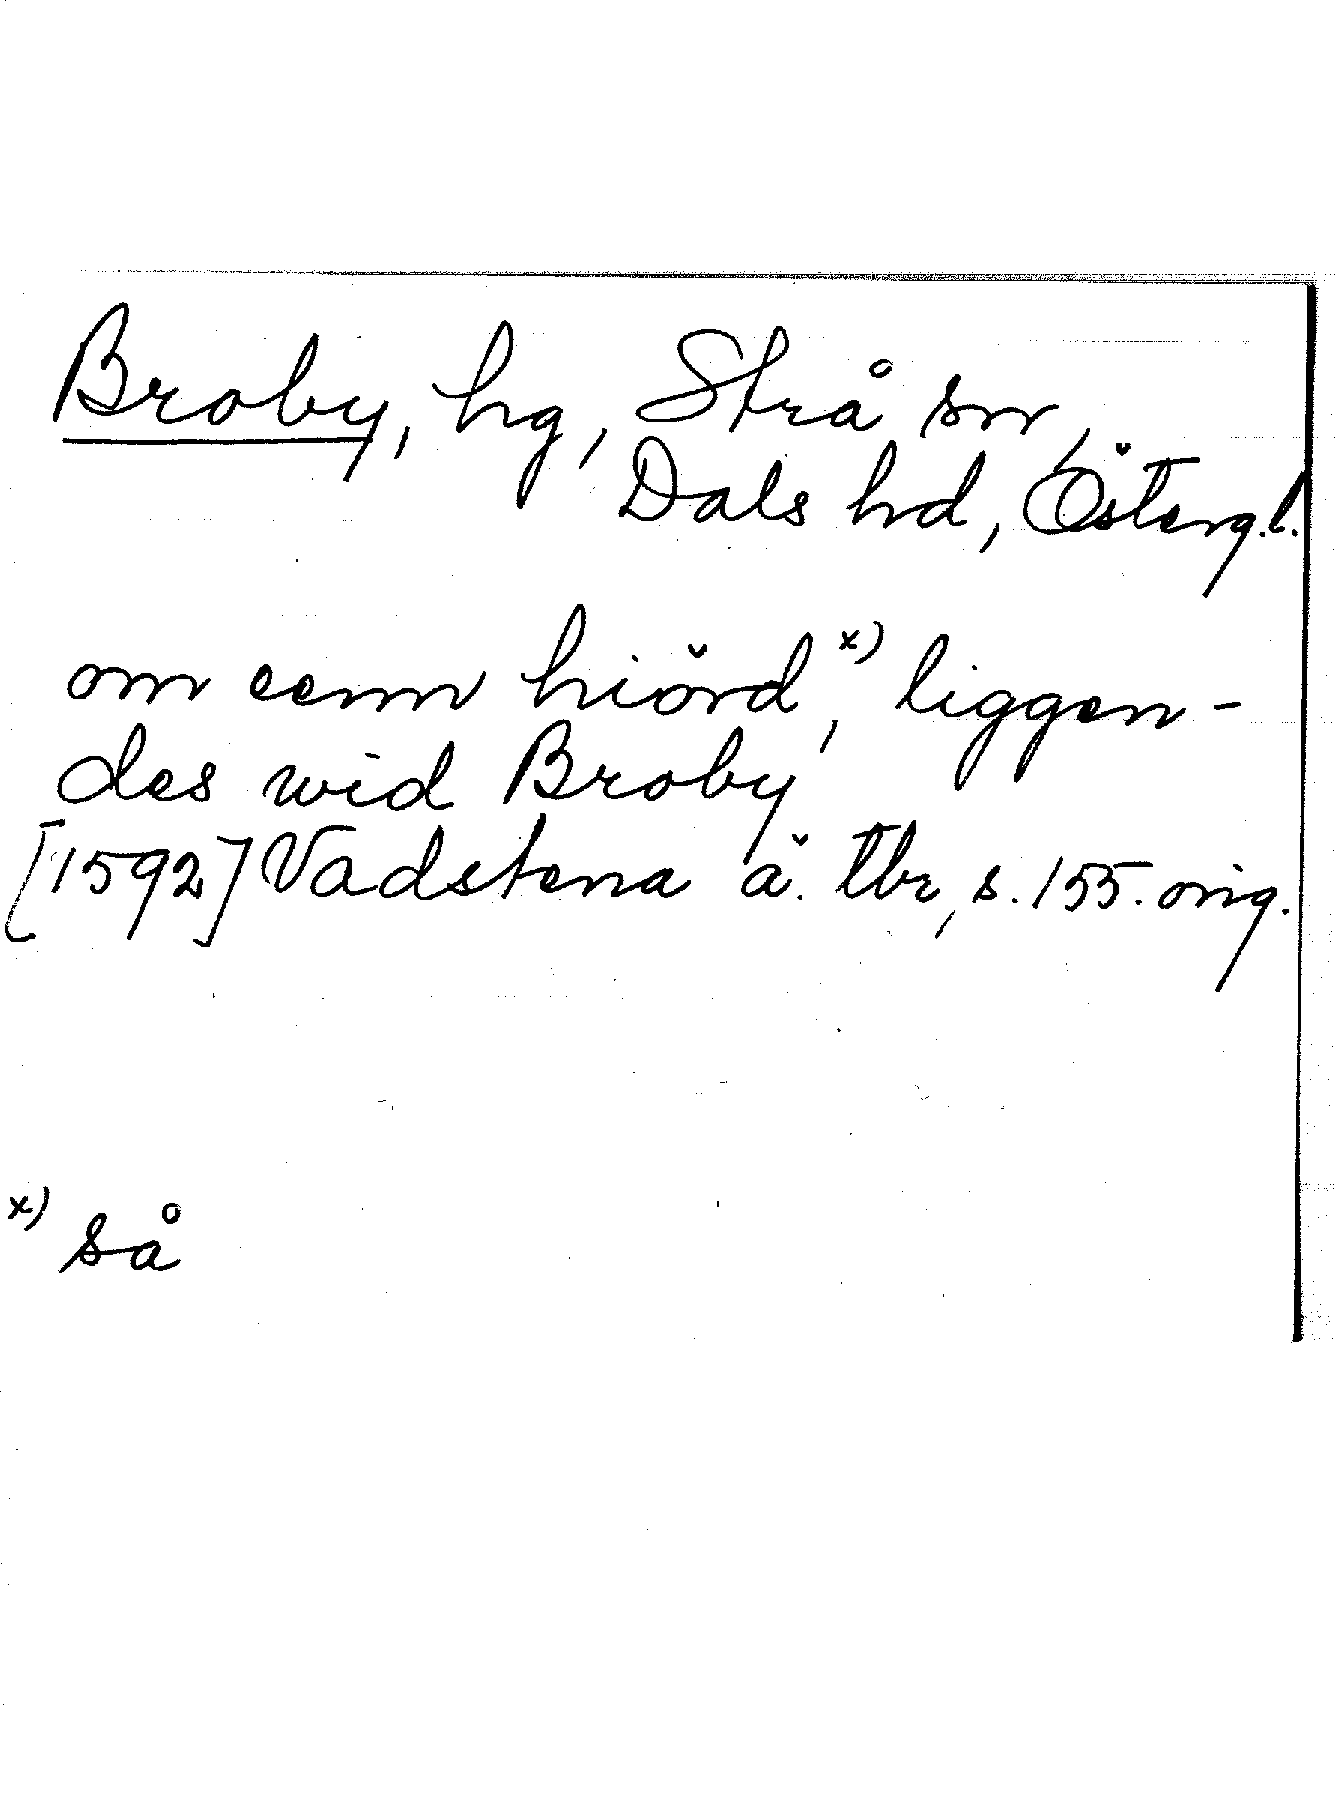 Broby, hg, Strå sn,
Dals hd, Österg.l.
om eenn hiörd,x) liggen-
des wid Broby
[1592] Vadstena ä. tbr, s. 155. orig.
x) så